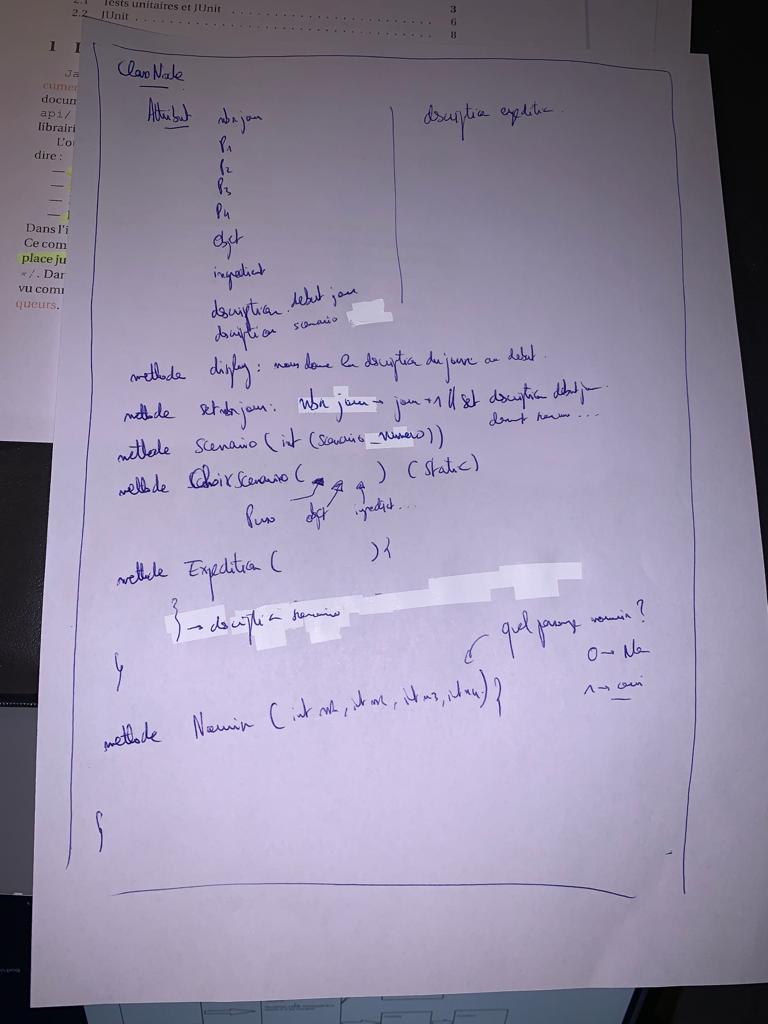 2.1 Tests unitaires et JUnit 3
2.2 JUnit 6
8
1
Ja
cume
docum
api/
librairi
L'o
dire :
Dans l'i
Ce com
place ju
*/. Dar
vu comm
queurs.
Class Node
Attribut nbr jour
description expedition
P1
P2
P3
P4
objet
ingredient
description debut jour
description scenario
methode display : nous donne la description du jour au debut
methode set nbr jour : nbr jour → jour + 1 // set description début jour
methode Scenario (int (scenario_numero))
methode Choix scenario ( ) (static)
Perso objet ingredient...
methode Expedition ( ) {
} → description scenario
quel personnage nourrir ?
0 → Non
1 → oui
}
methode Nourrir (int n1, int n2, int n3, int n4) {
}